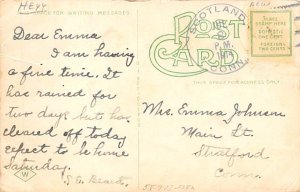 SPACE FOR WRITING MESSAGES
POST CARD
SCOTLAND
P.M.
CONN.
PLACE
STAMP HERE
DOMESTIC
ONE CENT
FOREIGN
TWO CENTS
THIS SPACE FOR ADDRESS ONLY
Dear Emma
I am having
a fine time. It
has rained for
two days but has
cleared off today
expect to be home
Saturday.
W
Mrs. Emma Johnson
Main St.
Stratford
Conn.